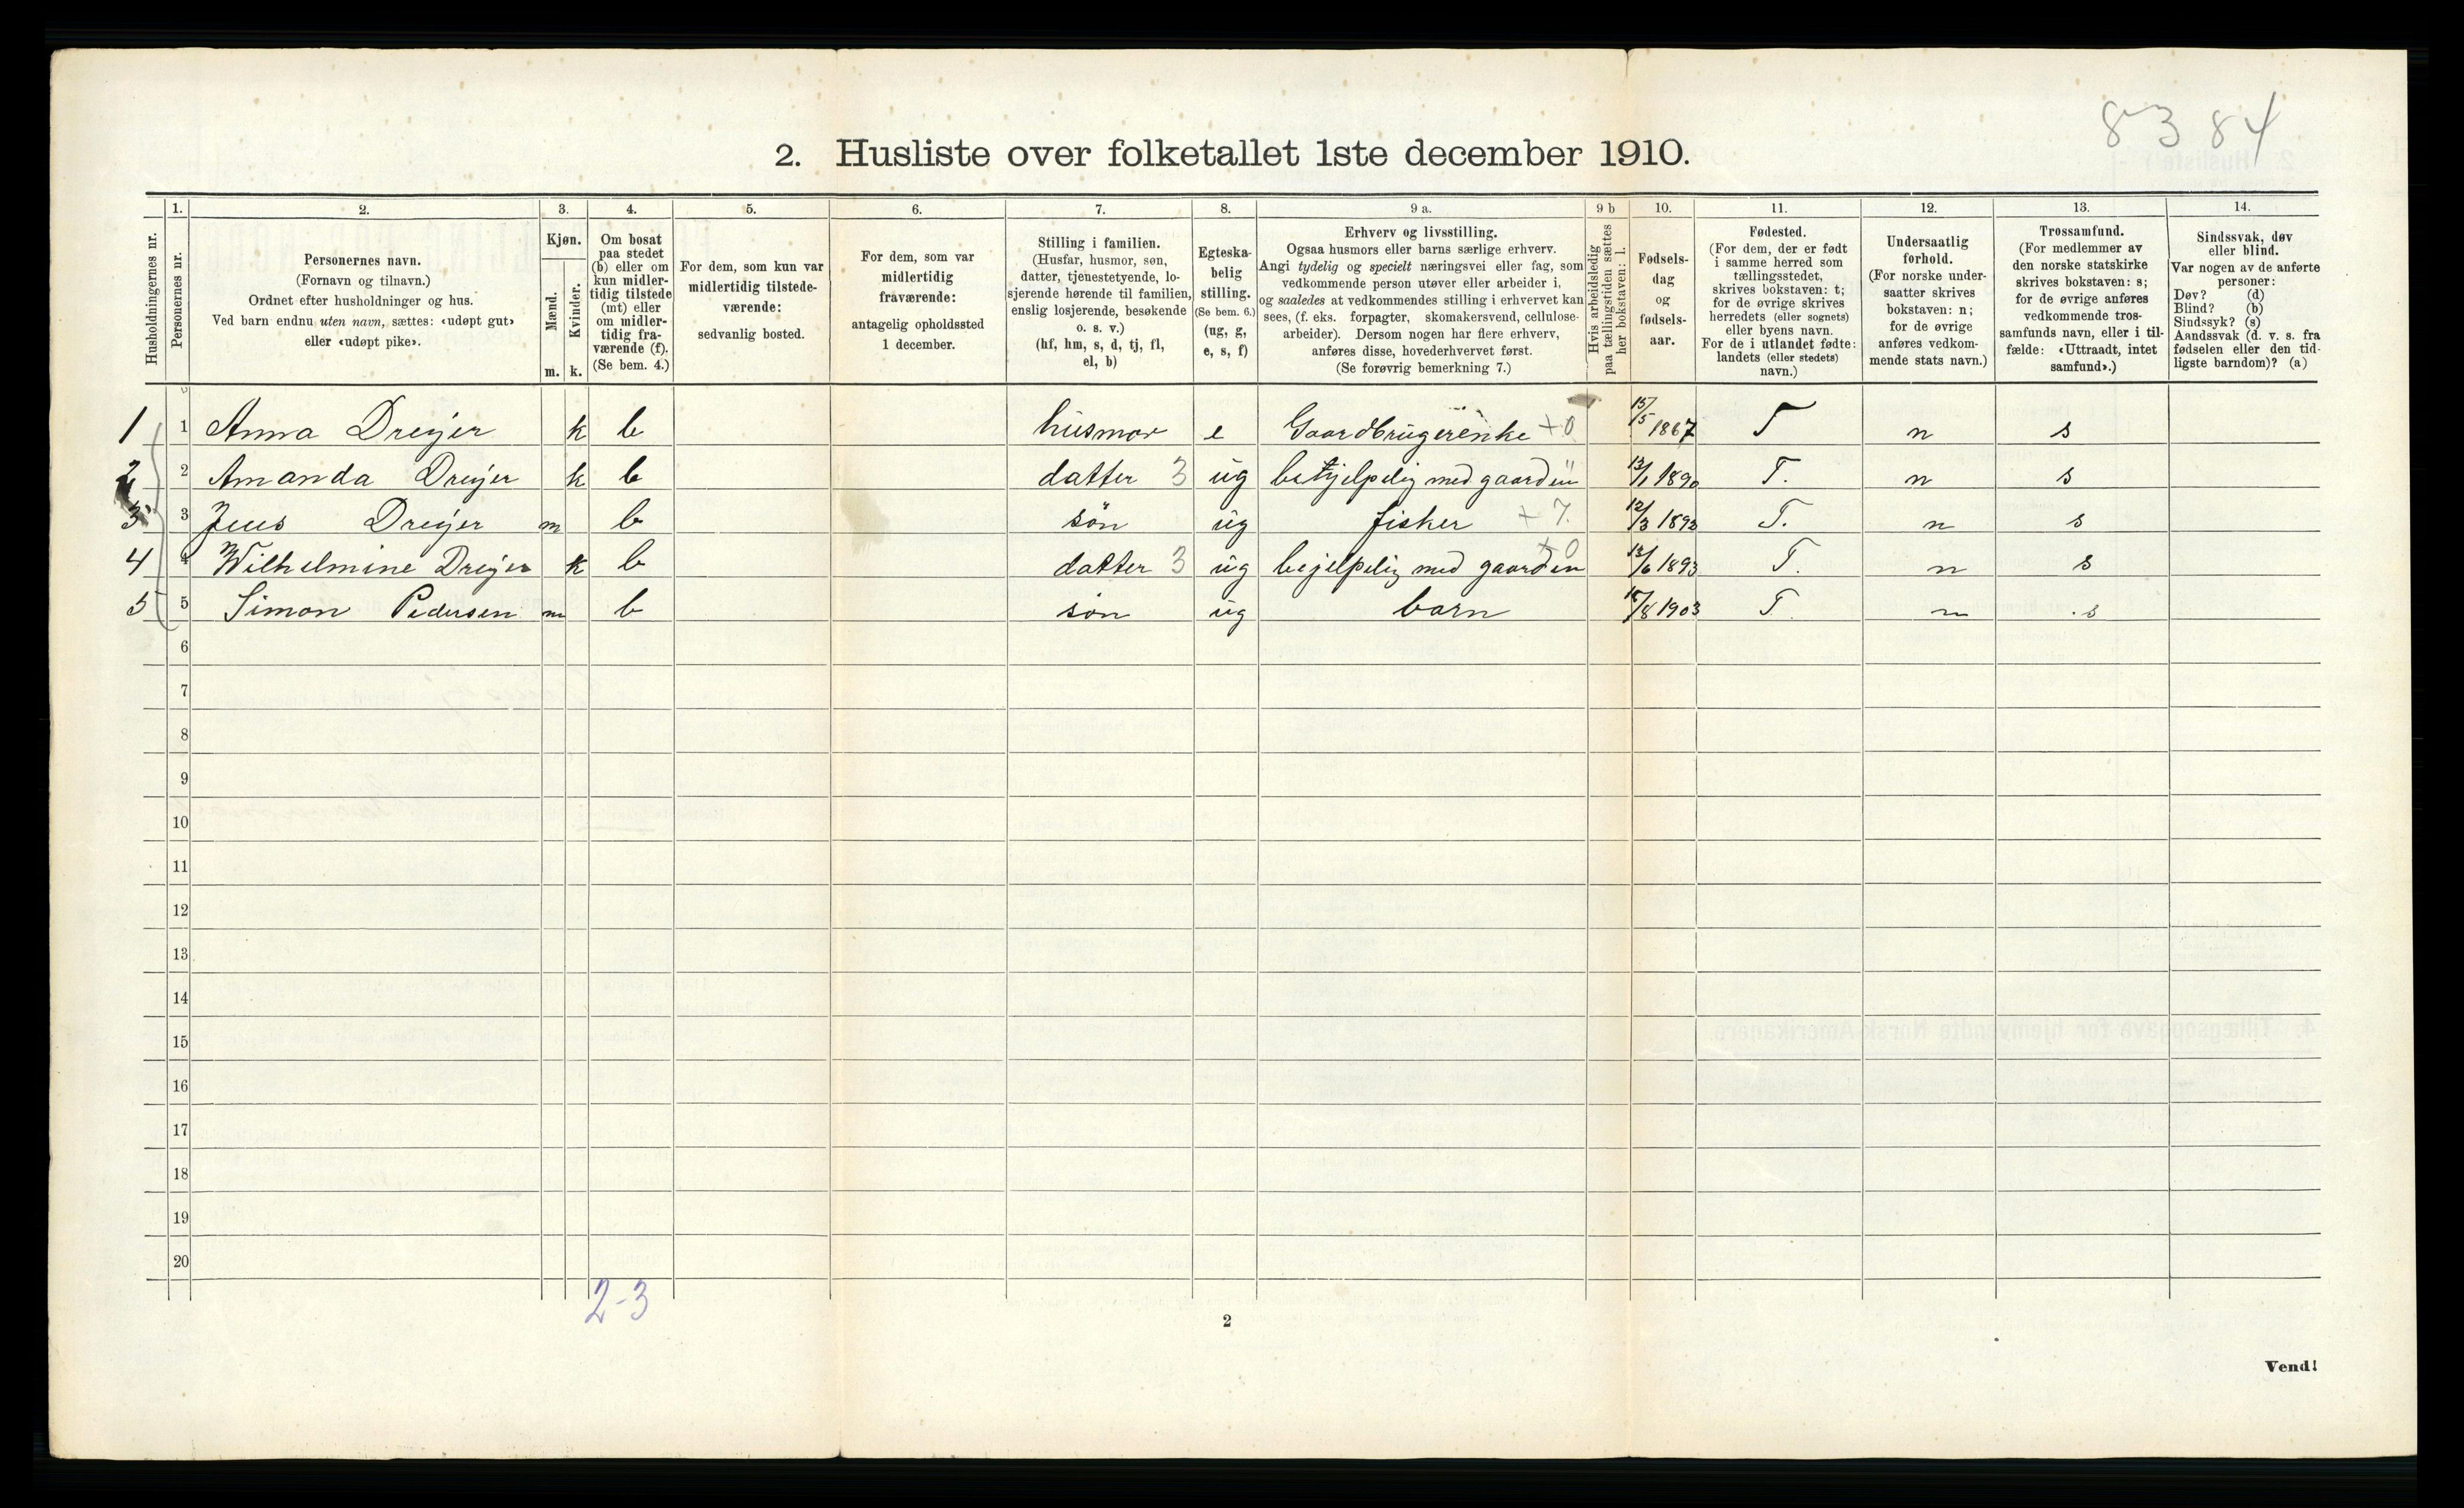 83 84
2. Husliste over folketallet 1ste december 1910.
Husholdningernes nr.
1.
Personernes nr.
2.
Personernes navn.
(Fornavn og tilnavn.)
Ordnet efter husholdninger og hus.
Ved barn endnu uten navn, sættes: «udøpt gut»
eller «udøpt pike».
3.
Kjøn.
Mænd.
Kvinder.
m. k.
4.
Om bosat
paa stedet
(b) eller om
kun midler-
tidig tilstede
(mt) eller
om midler-
tidig fra-
værende (f).
(Se bem. 4.)
5.
For dem, som kun var
midlertidig tilstede-
værende:
sedvanlig bosted.
6.
For dem, som var
midlertidig
fraværende:
antagelig opholdssted
1 december.
7.
Stilling i familien.
(Husfar, husmor, søn,
datter, tjenestetyende, lo-
sjerende hørende til familien,
enslig losjerende, besøkende
o. s. v.)
(hf, hm, s, d, tj, fl,
el, b)
8.
Egteska-
belig
stilling.
(Se bem. 6.)
(ug, g,
e, s, f)
9 a.
Erhverv og livsstilling.
Ogsaa husmors eller barns særlige erhverv.
Angi tydelig og specielt næringsvei eller fag, som
vedkommende person utøver eller arbeider i,
og saaledes at vedkommendes stilling i erhvervet kan
sees, (f. eks. forpagter, skomakersvend, cellulose-
arbeider). Dersom nogen har flere erhverv,
anføres disse, hovederhvervet først.
(Se forøvrig bemerkning 7.)
9 b
Hvis arbeidsledig
paa tællingstiden sættes
her bokstaven: l.
10.
Fødsels-
dag
og
fødsels-
aar.
11.
Fødested.
(For dem, der er født
i samme herred som
tællingsstedet,
skrives bokstaven: t;
for de øvrige skrives
herredets (eller sognets)
eller byens navn.
For de i utlandet fødte:
landets (eller stedets)
navn.)
12.
Undersaatlig
forhold.
(For norske under-
saatter skrives
bokstaven: n;
for de øvrige
anføres vedkom-
mende stats navn.)
13.
Trossamfund.
(For medlemmer av
den norske statskirke
skrives bokstaven: s;
for de øvrige anføres
vedkommende tros-
samfunds navn, eller i til-
fælde: «Uttraadt, intet
samfund».)
14.
Sindssvak, døv
eller blind.
Var nogen av de anførte
personer:
Døv? (d)
Blind? (b)
Sindssyk? (s)
Aandssvak (d. v. s. fra
fødselen eller den tid-
ligste barndom)? (a)
1 1 Anna Dreyer k b husmor e Gaardbrugerenke +0 15/5 1867 T n s
2 2 Amanda Dreyer k b datter 3 ug behjelpelig med gaarden 13/1 1890 T. n s
3 3 Jens Dreyer m b søn ug fisker +7. 12/3 1892 T. n s
4 4 Wilhelmine Dreyer k b datter 3 ug bejelpelig med gaarden +0 13/6 1893 T. n s
5 5 Simon Pedersen m b søn ug barn /8 1903 T n s
6
7
8
9
10
11
12
13
14
15
16
17
18
19
20
2-3
2
Vend!